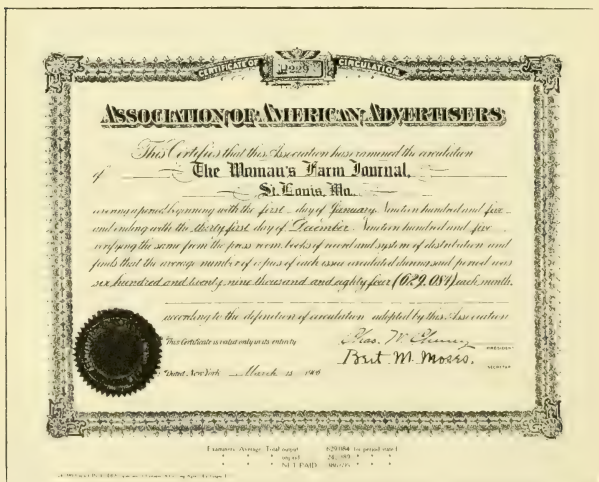 CERTIFICATE OF CIRCULATION
ASSOCIATION OF AMERICAN ADVERTISERS
This Certifies that this Association has examined the circulation
of The Woman's Farm Journal,
St. Louis, Mo.,
covering a period beginning with the first day of January Nineteen hundred and five
and ending with the thirty first day of December Nineteen hundred and five
verifying the same from the press room, books of record and system of distribution and
finds that the average number of copies of each issue circulated during said period was
six hundred and twenty, nine thousand and eighty four (629,084) each month,
according to the definition of circulation adopted by this Association
This Certificate is valid only in its entirety
PRESIDENT
Bert M. Moses.
SECRETARY
Dated New York March 1906
Examiners Average Total output 629,084 for period stated
NET PAID